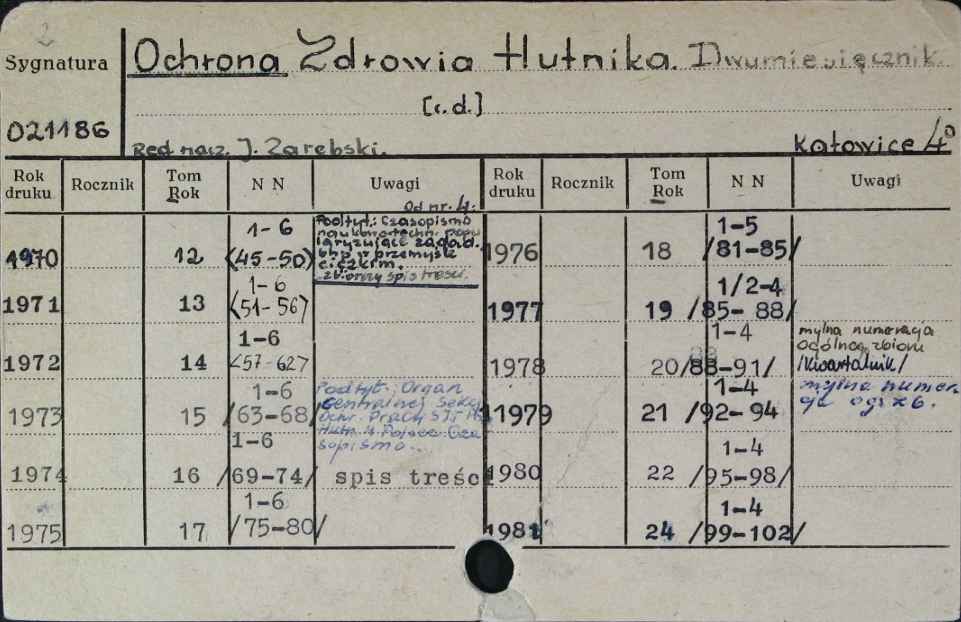 2
Sygnatura Ochrona Zdrowia Hutnika. Dwumiesięcznik.
[c.d.]
021186
Red. nacz. J. Zarębski. Katowice 4°
Rok druku Rocznik Tom Rok N N Uwagi Rok druku Rocznik Tom Rok N N Uwagi
1970 12 1-6 <45-50> Od nr. 4: Podtyt.: Czasopismo
naukowo-techn. popu
laryzujące zagad.
bhp w przemyśle
ciężkim.
zbiorczy spis treści.
1976 18 1-5 /81-85/
1971 13 1-6 <51-56>
1977 19 1/2-4 /85-88/
1972 14 1-6 <57-62>
1978 20 1-4 /88-91/ mylna numeracja
ogólnego zbioru
/Kwartalnik/
1973 15 1-6 /63-68/ Podtyt.: Organ
Centralnej Sekcji
Ochr. Pracy
Hutn. w Polsce. Cza
sopismo...
1979 21 1-4 /92-94 mylna numer
acja
1974 16 1-6 /69-74/ spis treśc
1980 22 1-4 /95-98/
1975 17 1-6 /75-80/
1981 24 1-4 /99-102/